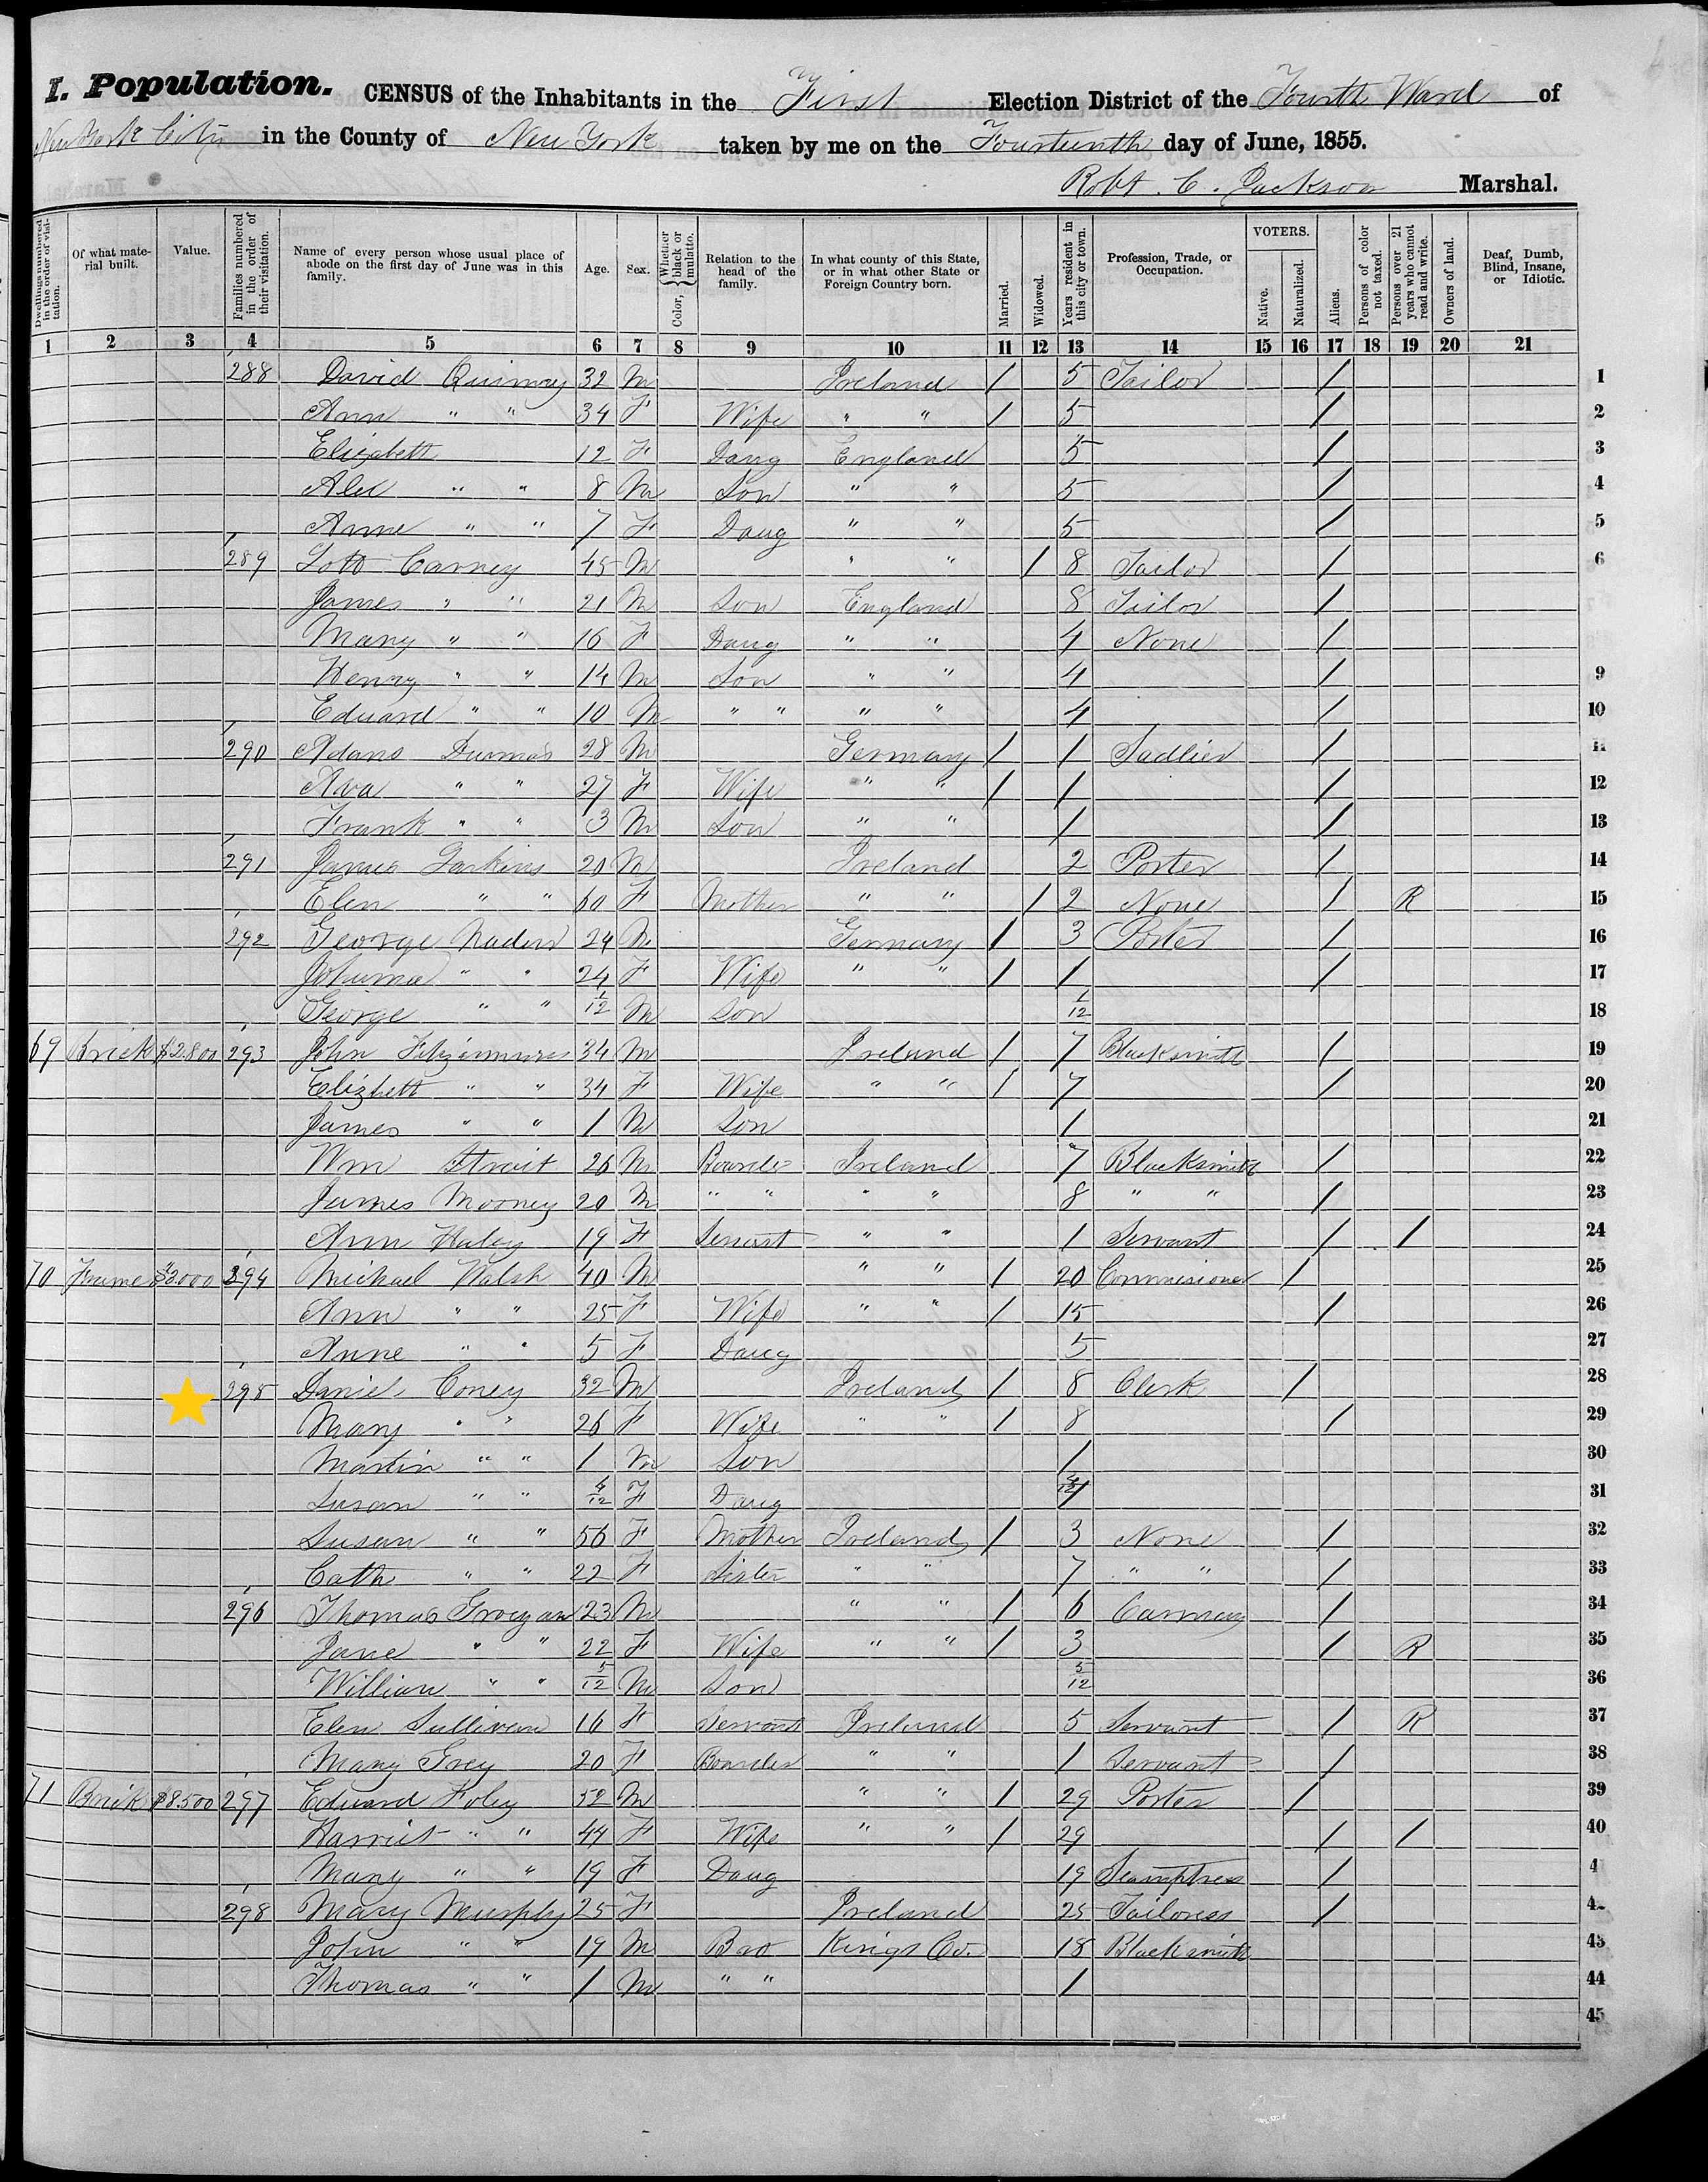 I. Population. CENSUS of the Inhabitants in the First Election District of the Fourth Ward of
New York City in the County of New York taken by me on the Fourteenth day of June, 1855.
Robt. C. Jackson Marshal.
Dwellings numbered in the order of visitation. Of what material built. Value. Families numbered in the order of their visitation. Name of every person whose usual place of abode on the first day of June was in this family. Age. Sex. Color, Whether black or mulatto. Relation to the head of the family. In what county of this State, or in what other State or Foreign Country born. Married. Widowed. Years resident in this city or town. Profession, Trade, or Occupation. VOTERS. Native. Naturalized. Aliens. Persons of color not taxed. Persons over 21 years who cannot read and write. Owners of land. Deaf, Dumb, Blind, Insane, or Idiotic.
1 2 3 4 5 6 7 8 9 10 11 12 13 14 15 16 17 18 19 20 21
288 David 32 M Ireland / 5 Tailor / 1
Ann " " 34 F Wife " " / 5 / 2
Elizabeth 12 F Daug England 5 / 3
Alex " " 8 M Son " " 5 / 4
Anne " " 7 F Daug " " 5 / 5
289 Carney 45 M " " / 8 Tailor / 6
James " " 21 M Son England 8 Tailor /
Mary " " 16 F Daug " " 4 None /
Henry " " 14 M Son " " 4 / 9
Edward " " 10 M " " " " 4 / 10
290 Adams 28 M Germany / 1 Sadlier / 11
Ava " " 27 F Wife " " / 1 / 12
Frank " " 3 M Son " " 1 / 13
291 James Gaskins 20 M Ireland 2 Porter / 14
Elen " " 60 F Mother " " / 2 None / R 15
292 George 24 M Germany / 3 Porter / 16
" " 24 F Wife " " / 1 / 17
George " " 1/12 M Son 1/12 18
69 Brick $2.800 293 John 34 M Ireland / 7 Blacksmith / 19
Elizbett " " 34 F Wife " " / 7 / 20
James " " 1 M Son 1 21
Wm Strait 26 M Boarder Ireland 7 Blacksmith / 22
James Mooney 20 M " " " " 8 " " / 23
Ann Haley 19 F Servant " " 1 Servant / / 24
70 Frame $3.000 294 Michael Walsh 40 M " " / 20 Commisioner / 25
Ann " " 25 F Wife " " / 15 / 26
Anne " " 5 F Daug 5 27
295 Daniel Coney 32 M Ireland / 8 Clerk / 28
Mary " " 26 F Wife " " / 8 / 29
Martin " " 1 M Son 1 30
Susan " " 4/12 F Daug 4/12 31
Susan " " 56 F Mother Ireland / 3 None / 32
Cath " " 22 F Sister " " 7 " " / 33
296 Thomas Grogan 23 M " " / 6 Carman / 34
Jane " " 22 F Wife " " / 3 / R 35
William " " 5/12 M Son 5/12 36
Elen Sullivan 16 F Servant Ireland 5 Servant / R 37
Mary Grey 20 F Boarder " " 1 Servant / 38
71 Brick $8.500 297 Edward Foley 52 M " " / 29 Porter / 39
Harriet " " 44 F Wife " " / 29 / / 40
Mary " " 19 F Daug 19 Seamptress / 4
298 Mary Murphy 25 F Ireland 25 Tailoress / 4
John " " 19 M Bro Kings Co. 18 Blacksmith 43
Thomas " " 1 M " " 1 44
45